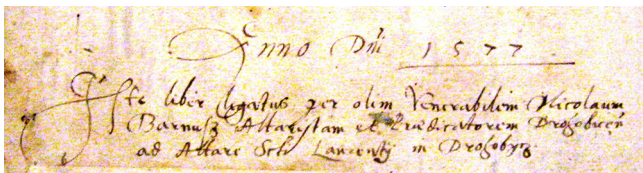 Anno Dni 1577
Iste liber legatus per olim Venerabilem Nicolaum
Barnusz Altaristam et Prædicatorem Drohobicen
ad Altare Scti Laurentij in Drohobycz.